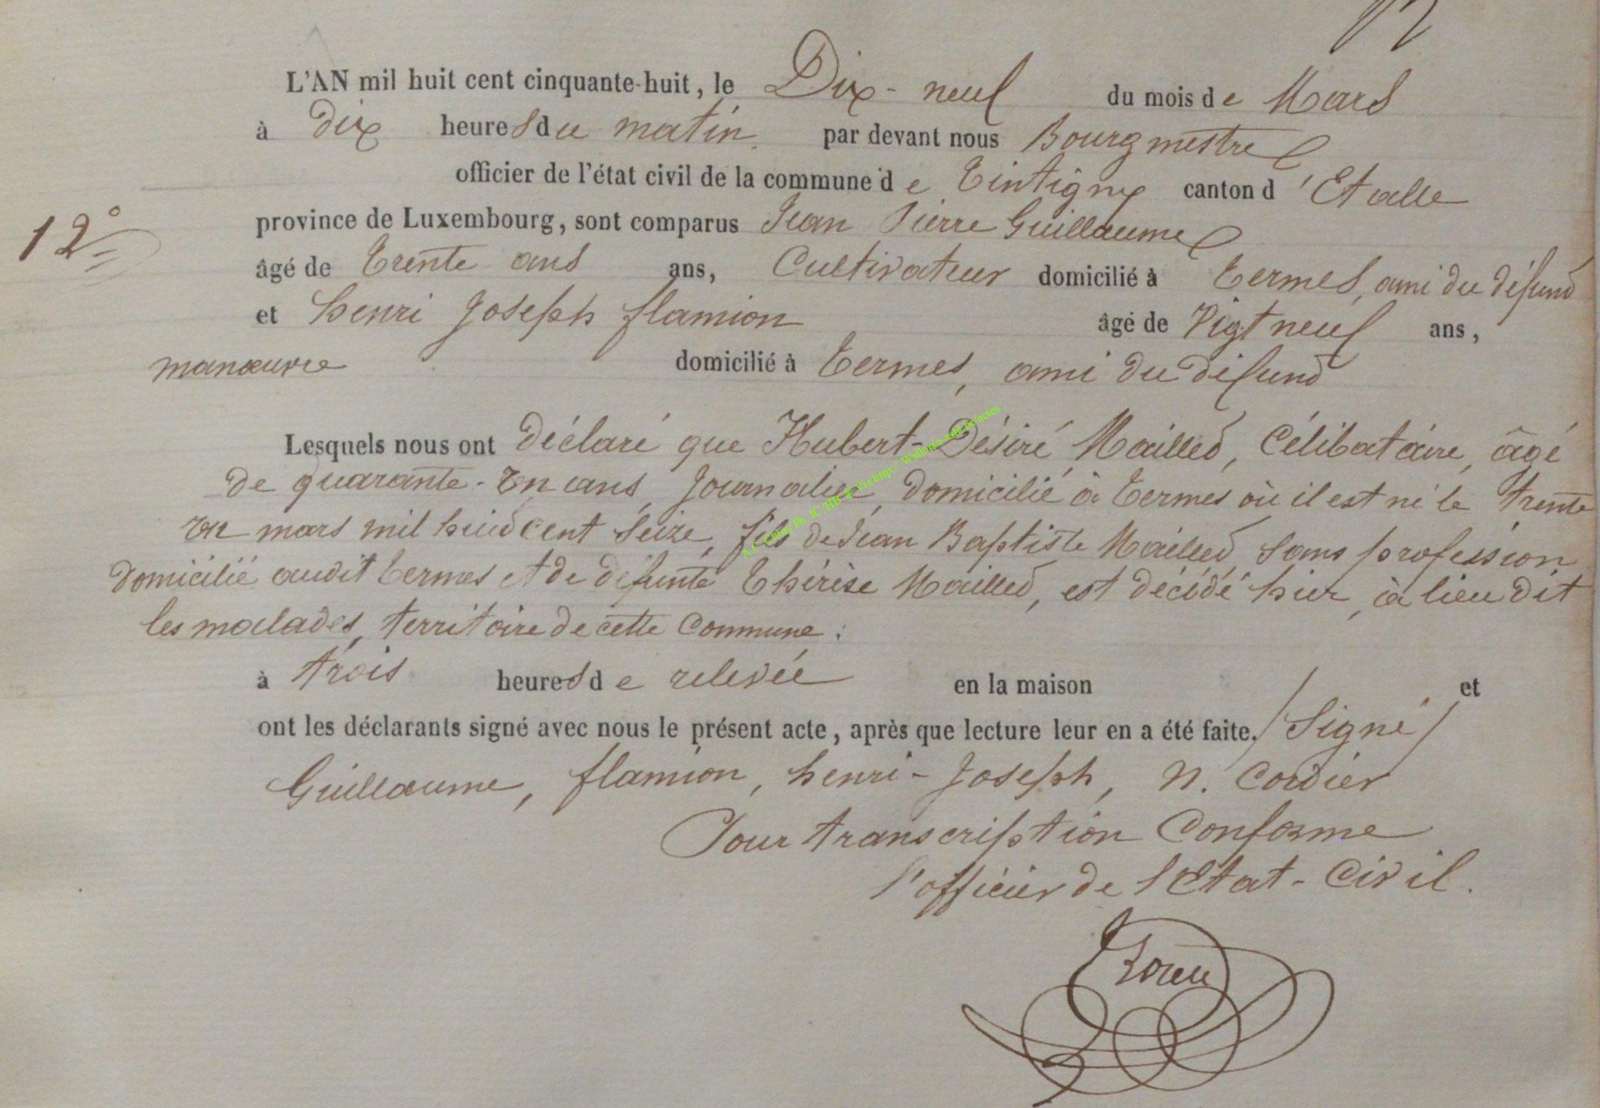 L'AN mil huit cent cinquante-huit, le Dix-neuf du mois de Mars
à dix heures du matin. par devant nous Bourgmestre
officier de l'état civil de la commune de Tintigny canton d'Etalle
12° province de Luxembourg, sont comparus Jean Pierre Guillaume
âgé de Trente ans ans, Cultivateur domicilié à Termes, ami du défund
et henri Joseph flamion âgé de Vigt neuf ans,
manœuvre domicilié à Termes, ami du défund
Lesquels nous ont déclaré que Hubert-Désiré Mailled, Célibataire, âgé
de quarante-un ans, Journalier, domicilié à Termes où il est né le trente
un mars mil huid cent seize, fils de Jean Baptiste Mailled, sans profession
domicilié audit Termes et de défunte Thérèse Mailled, est décédé hier, à lieu dit
les malades, territoire de cette Commune:
à trois heures de relevée en la maison et
ont les déclarants signé avec nous le présent acte, après que lecture leur en a été faite. /Signé/
Guillaume, flamion, henri-Joseph, N. Cordier
Pour transcription Conforme
l'officier de l'Etat-Civil.